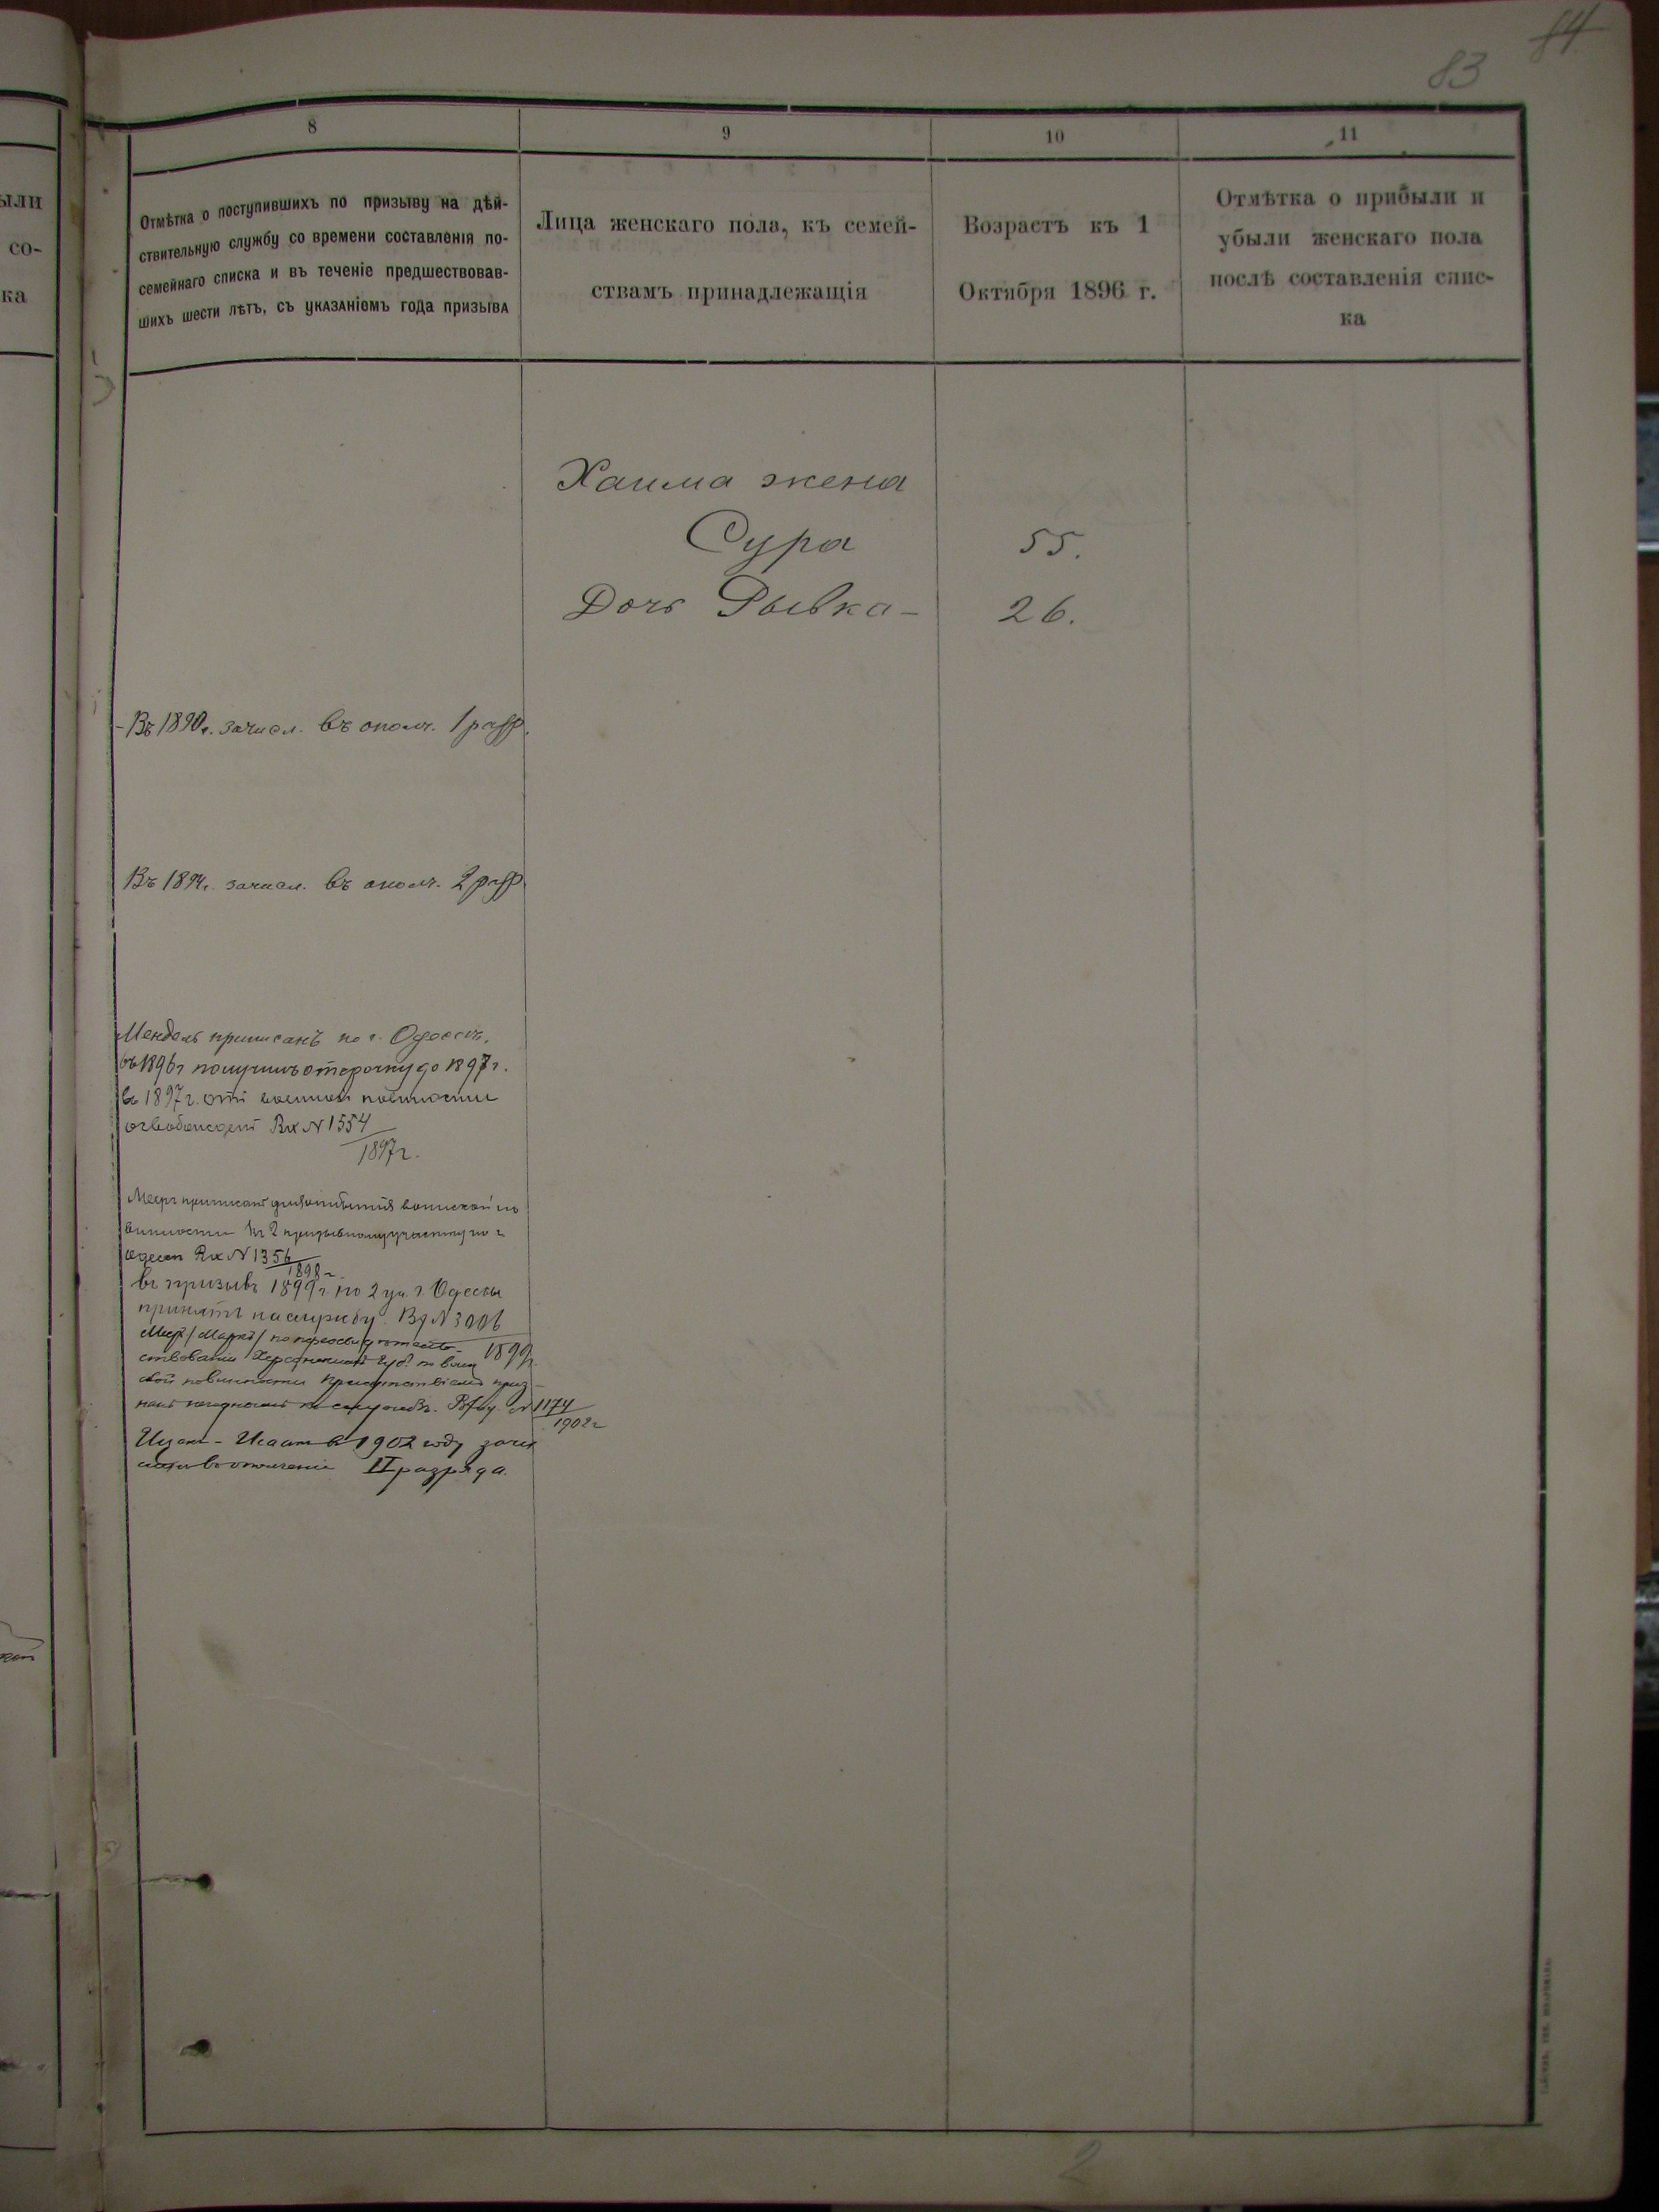 84
83
8
9
10
11
Отмѣтка о поступившихъ по призыву на дѣй-
ствительную службу со времени составленія по-
семейнаго списка и въ теченіе предшествовав-
шихъ шести лѣтъ, съ указаніемъ года призыва
Лица женскаго пола, къ семей-
ствамъ принадлежащія
Возрастъ къ 1
Октября 1896 г.
Отмѣтка о прибыли и
убыли женскаго пола
послѣ составленія спис-
ка
ыли
со-
ка
Хаима жена
Сура 55.
Дочь Рывка - 26.
- Въ 1890 г. зачисл. въ ополч. 1 разр.
Въ 1894 г. зачисл. въ ополч. 2 разр
Мендель приписанъ по г. Одессѣ.
въ 1896 г получилъ отсрочку до 1897 г.
въ 1897 г. отъ воинской повинности
освобожденъ Вх № 1554
1897 г.
Мееръ приписанъ для отбытія воинской по
винности къ 2 призывному участку по г
Одессѣ Вх № 1356
1898 г
въ призывъ 1899 г по 2 уч. г. Одессы
принятъ на службу. Вх № 3006
1899 г.
Меер / Маркъ / по переосвидѣтель
ствованіи Херсонскимъ Губ. по воин
ской повинности Присутствіемъ приз
нанъ негоднымъ къ службѣ. № 1174
1902 г
Ицекъ - Исаакъ въ 1902 году зачи
сленъ въ ополченіе II разряда.
2